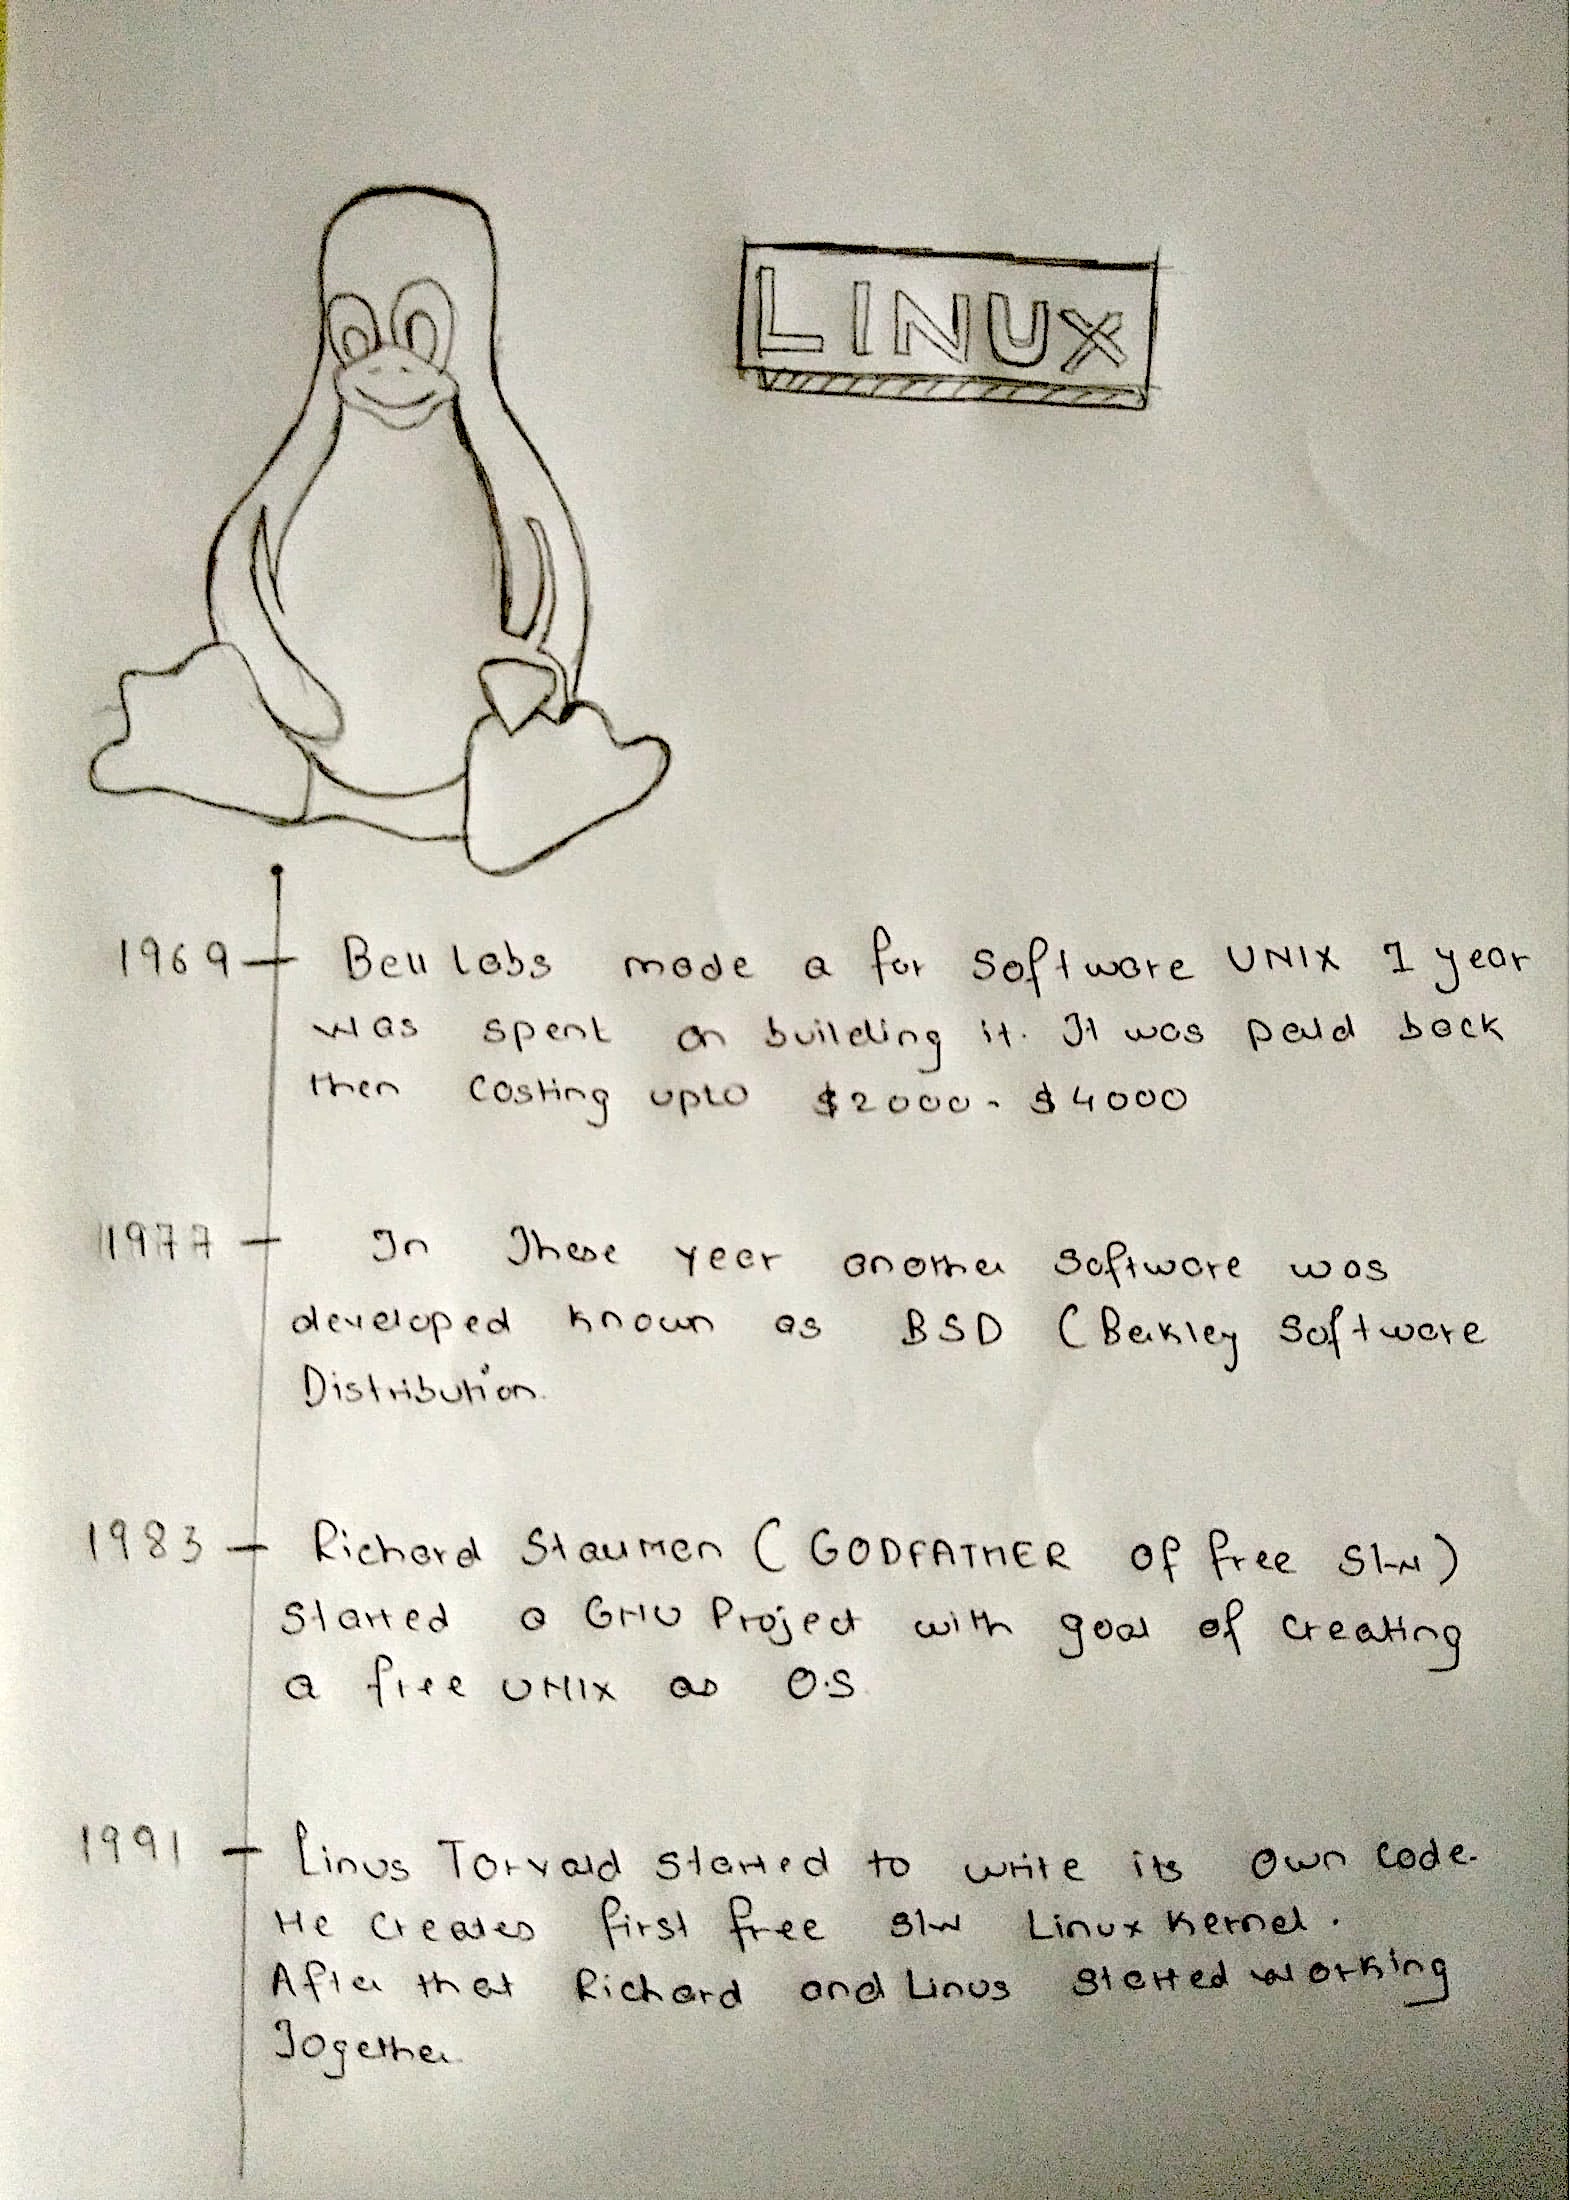 LINUX
1969 Bell Labs made a for software UNIX 1 year
was spent on building it. It was paid back
then costing upto $2000 - $4000
1977 In These year another software was
developed known as BSD (Berkley Software
Distribution.
1983 Richard Stallmen (GODFATHER of free S/W)
started a GNU Project with goal of creating
a free UNIX as O.S
1991 Linus Torvald started to write its own code.
He creates first free S/W Linux Kernel.
After that Richard and Linus started working
Together